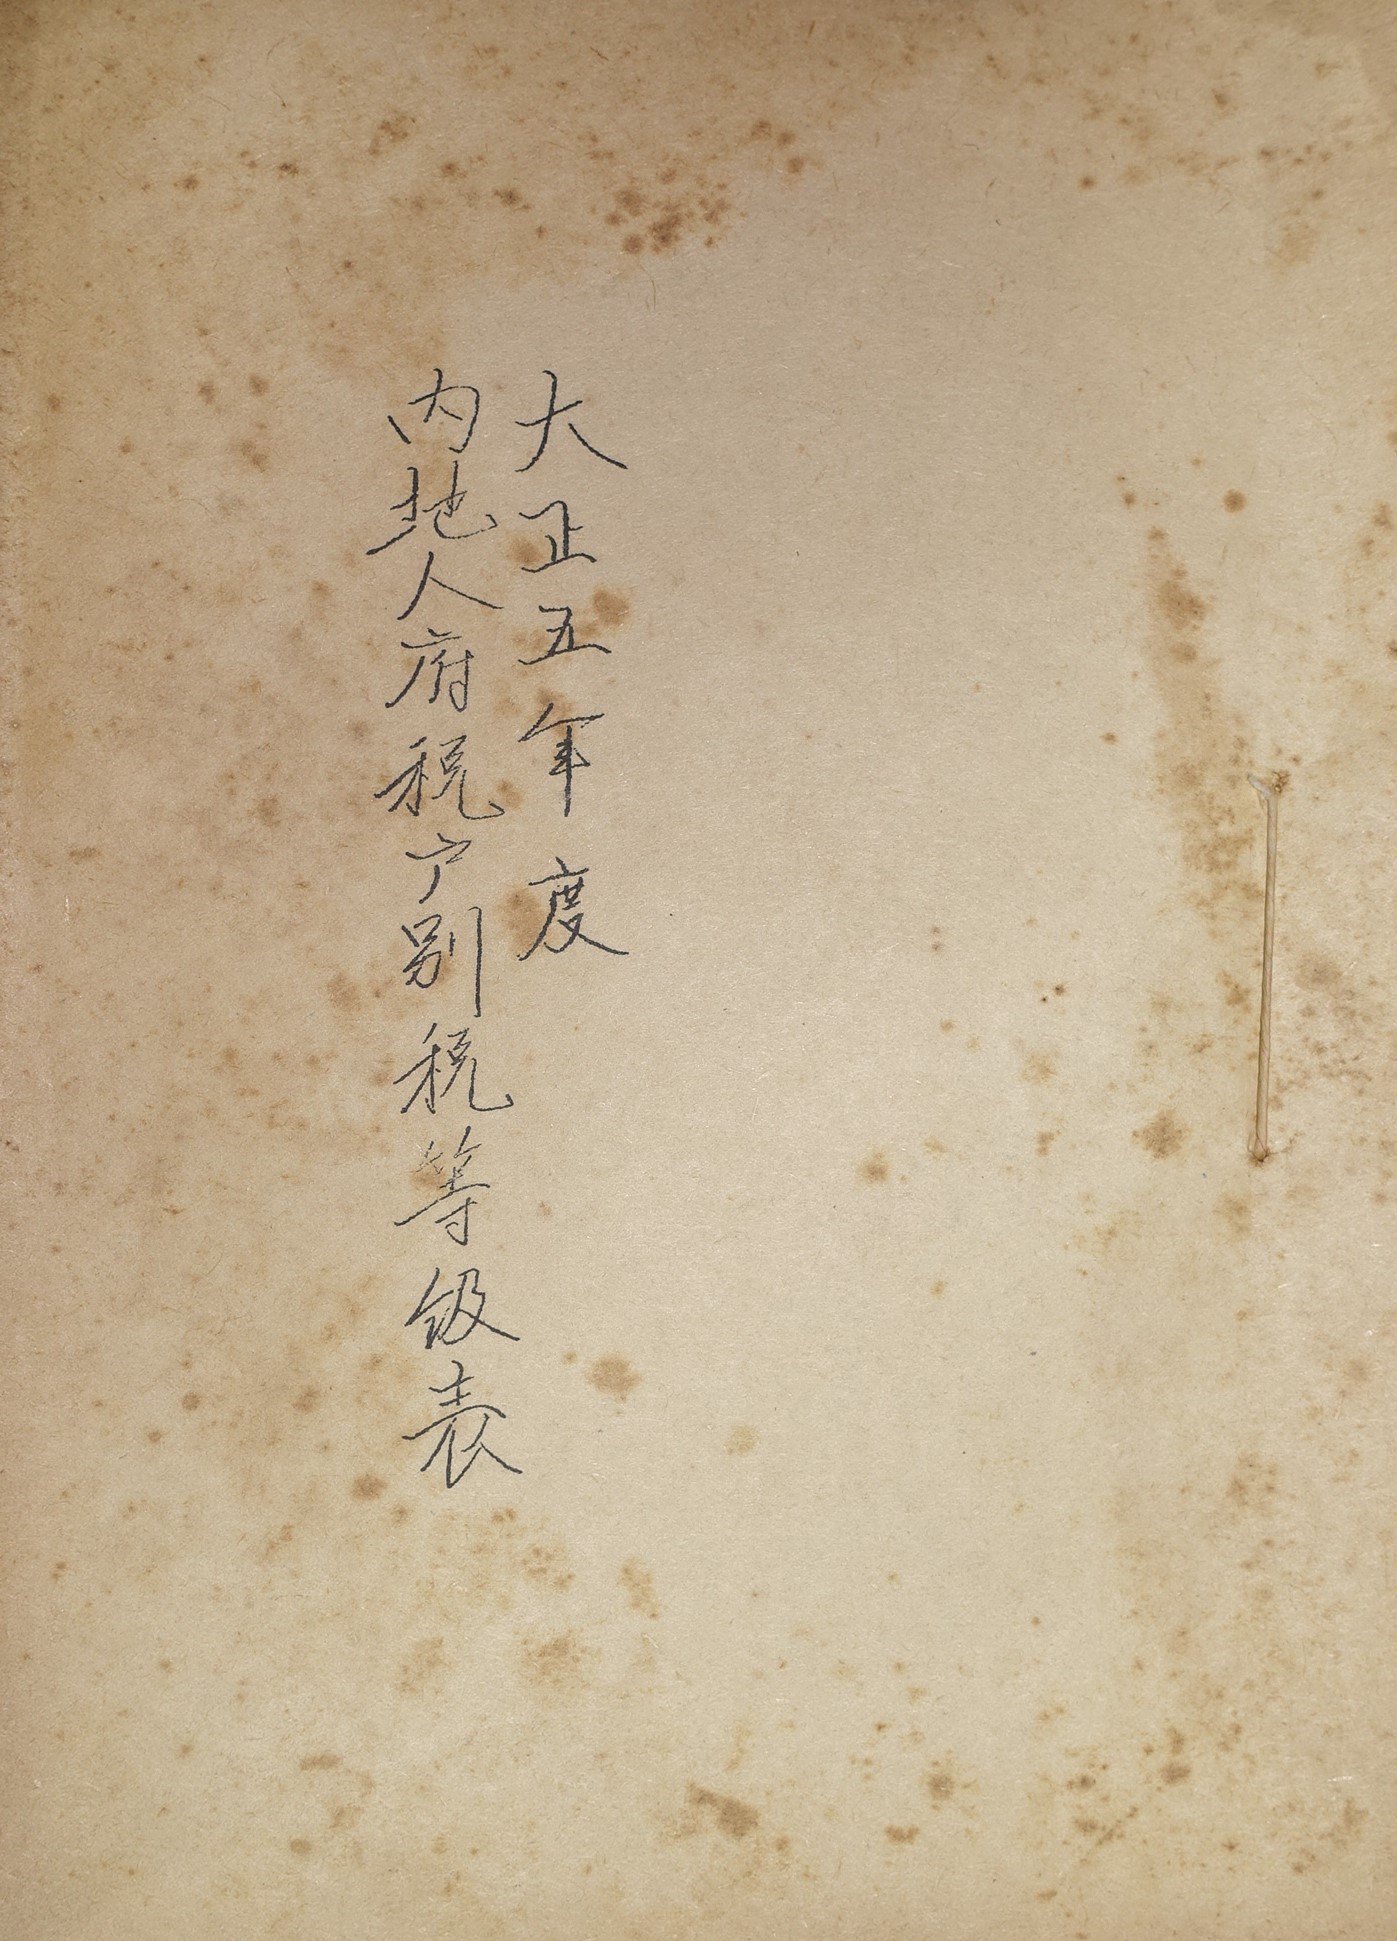 大正五年度
内地人府税戸別税等級表